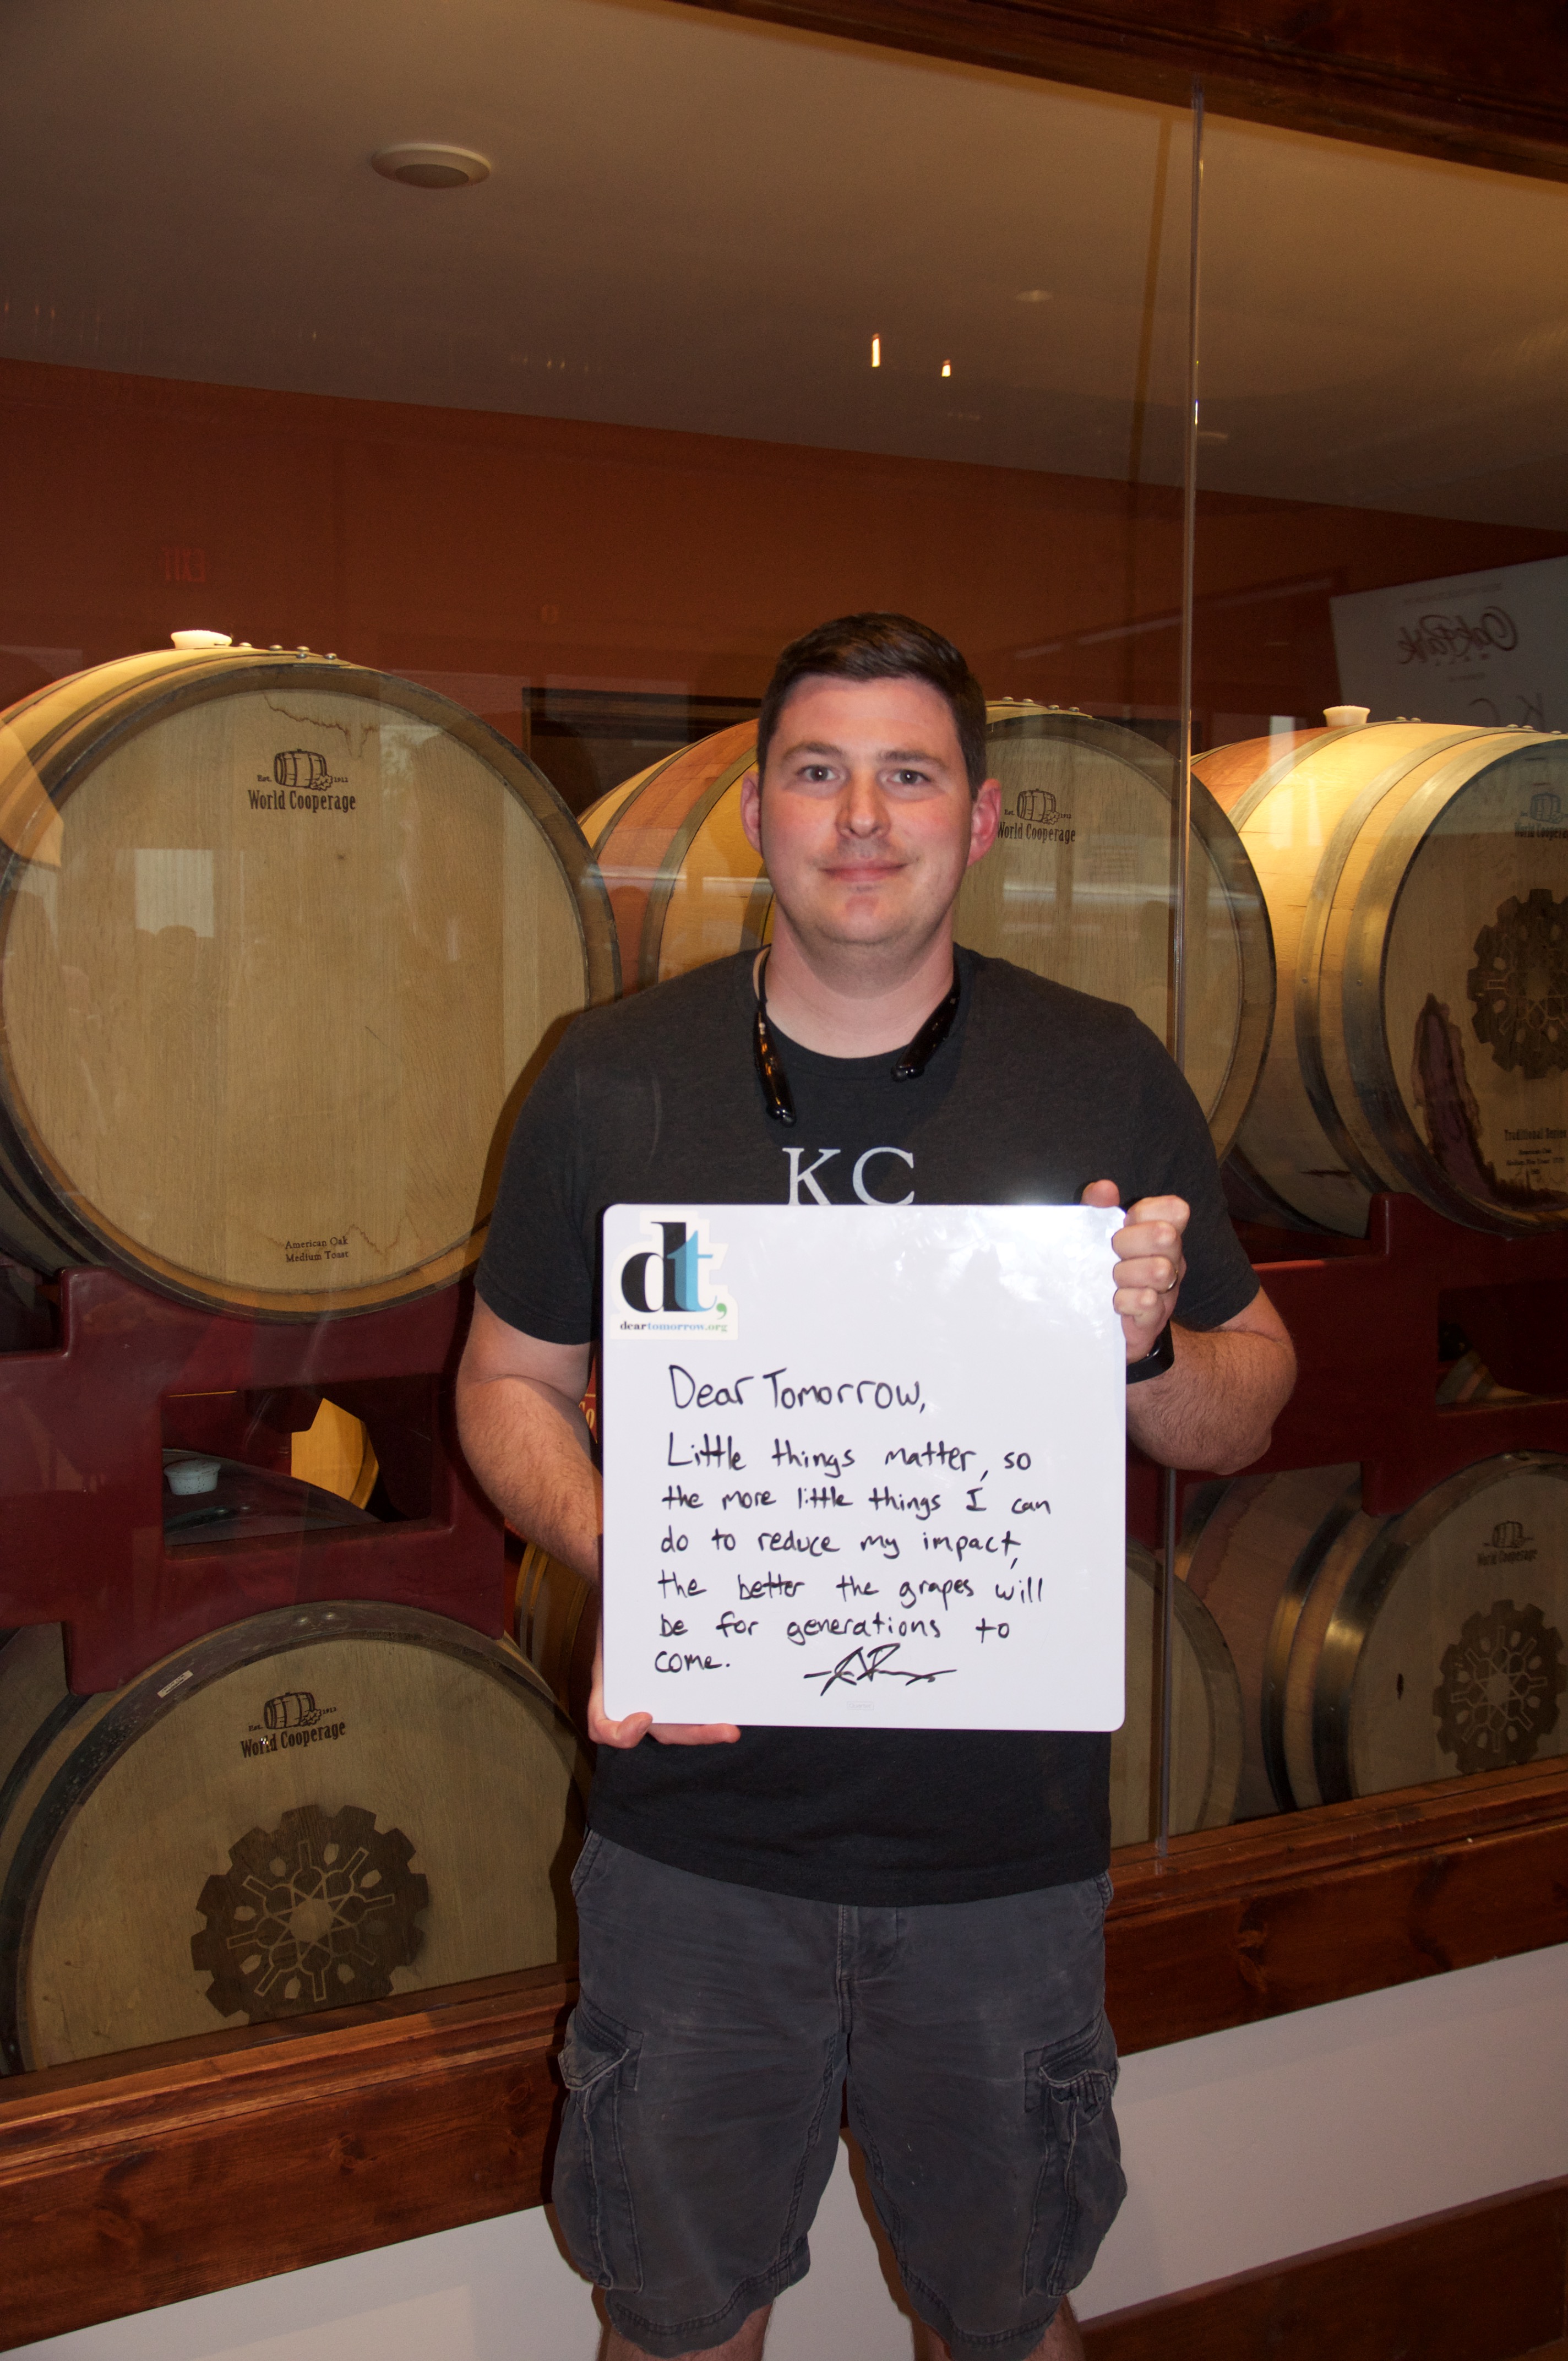 EXIT
Oak Park
KC
Est. 1912
World Cooperage
American Oak
Medium Toast
Est. 1912
World Cooperage
World Cooperage
Traditional Series
American Oak
KC
dt,
deartomorrow.org
Dear Tomorrow,
Little things matter, so
the more little things I can
do to reduce my impact,
the better the grapes will
be for generations to
come.
Est. 1912
World Cooperage
World Cooperage